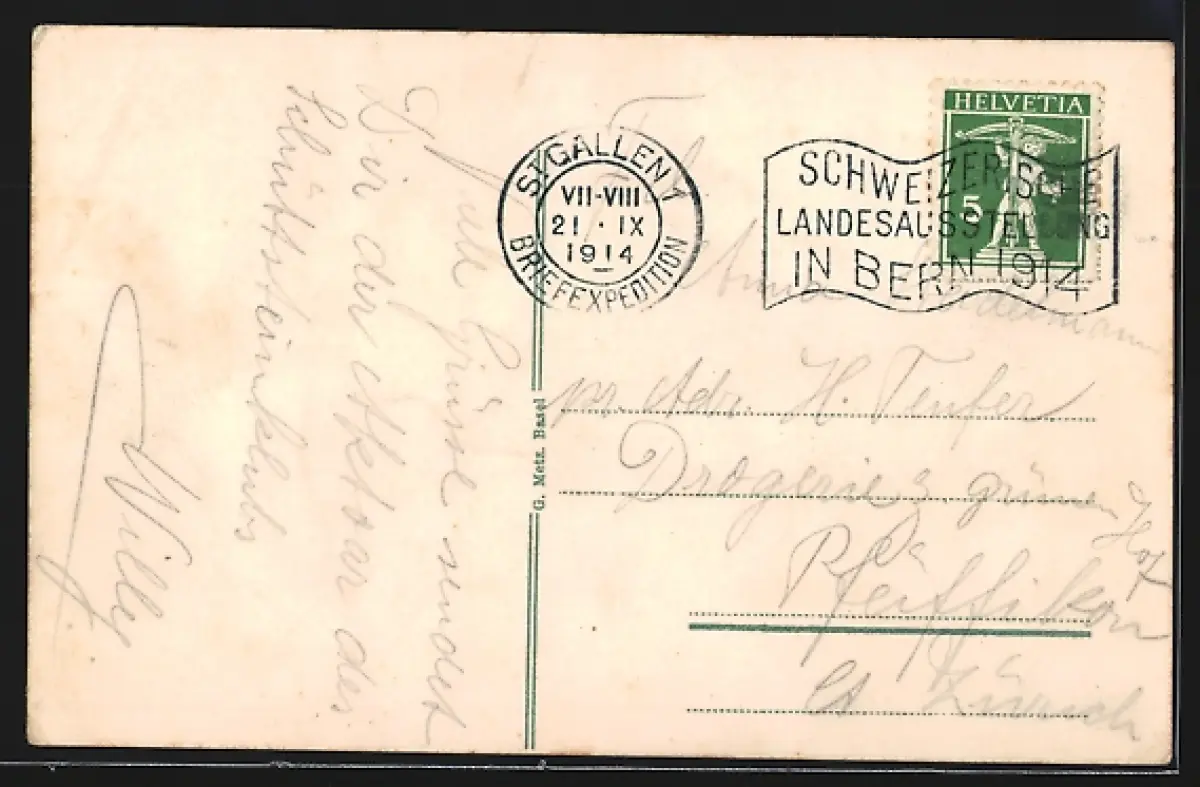 Gute Grüsse sendet
Dir der Aktuar des
Schüttsteinklubs
Willy
G. Metz. Basel
ST. GALLEN 1
VII-VIII
21 · IX
1914
BRIEFEXPEDITION
HELVETIA
5
SCHWEIZERISCHE
LANDESAUSSTELLUNG
IN BERN 1914
Anna
pr. Adr. H. Teufer
Drogerie z. grünen Hof
Pfäffikon
Kt Zürich